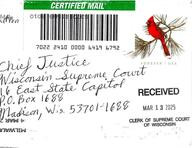 CERTIFIED MAIL®
7022 2410 0000 6419 6792
FOREVER
Chief Justice
Wisconsin Supreme Court
16 East State Capitol
P.O. Box 1688
Madison, Wis. 53701-1688
RECEIVED
MAR 13 2025
CLERK OF SUPREME COURT
OF WISCONSIN